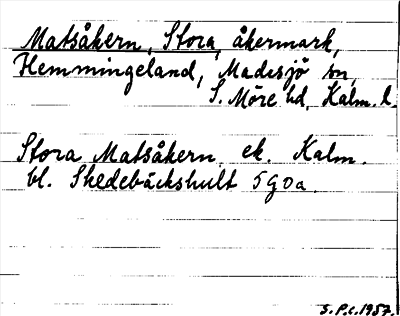 Matsåkern, Stora, åkermark,
Hemmingeland, Madesjö sn,
S. Möre hd, Kalm. l.
Stora Matsåkern, ek. Kalm.
bl. Skedebäckshult 5G0a.
S.P.C. 1957.